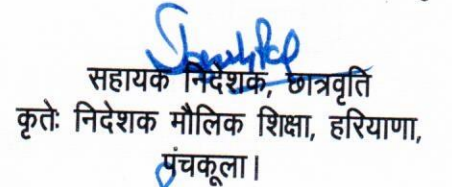 सहायक निदेशक, छात्रवृति
कृतेः निदेशक मौलिक शिक्षा, हरियाणा,
पंचकूला।